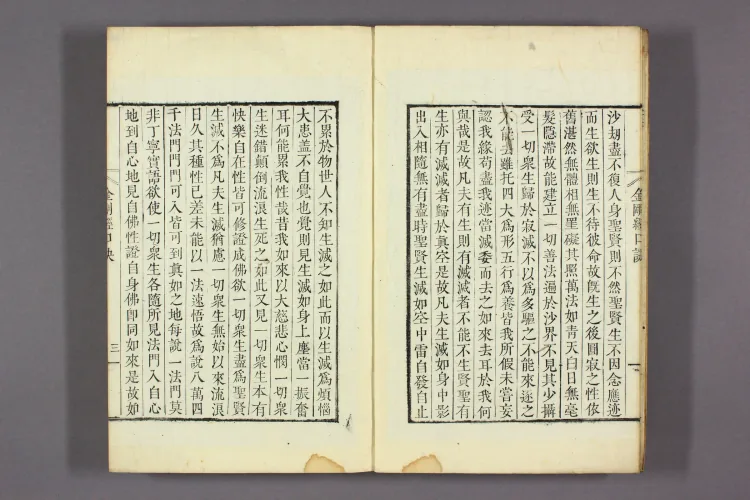 沙劫盡不復人身聖賢則不然聖賢生不因念應迹
而生欲生則生不待彼命故旣生之後圓寂之性依
舊湛然無體相無罣礙其照萬法如青天白日無毫
髮隱滯故能建立一切善法遍於沙界不見其少攝
受一切衆生歸於寂滅不以爲多驅之不能來逐之
不能去雖托四大爲形五行爲養皆我所假未嘗妄
認我緣苟盡我迹當滅委而去之如來去耳於我何
與哉是故凡夫有生則有滅滅者不能不生聖賢有
生亦有滅滅者歸於眞空是故凡夫生滅如身中影
出入相隨無有盡時聖賢生滅如空中雷自發自止
不累於物世人不知生滅之如此而以生滅爲煩惱
大患葢不自覺也覺則見生滅如身上塵當一振奮
耳何能累我性哉昔我如來以大慈悲心憫一切衆
生迷錯顛倒流浪生死之如此又見一切衆生本有
快樂自在性皆可修證成佛欲一切衆生盡爲聖賢
生滅不爲凡夫生滅猶慮一切衆生無始以來流浪
日久其種性已差未能以一法速悟故爲說八萬四
千法門門門可入皆可到眞如之地每說一法門莫
非丁寧實語欲使一切衆生各隨所見法門入自心
地到自心地見自佛性證自身佛卽同如來是故如
金剛經口訣
三